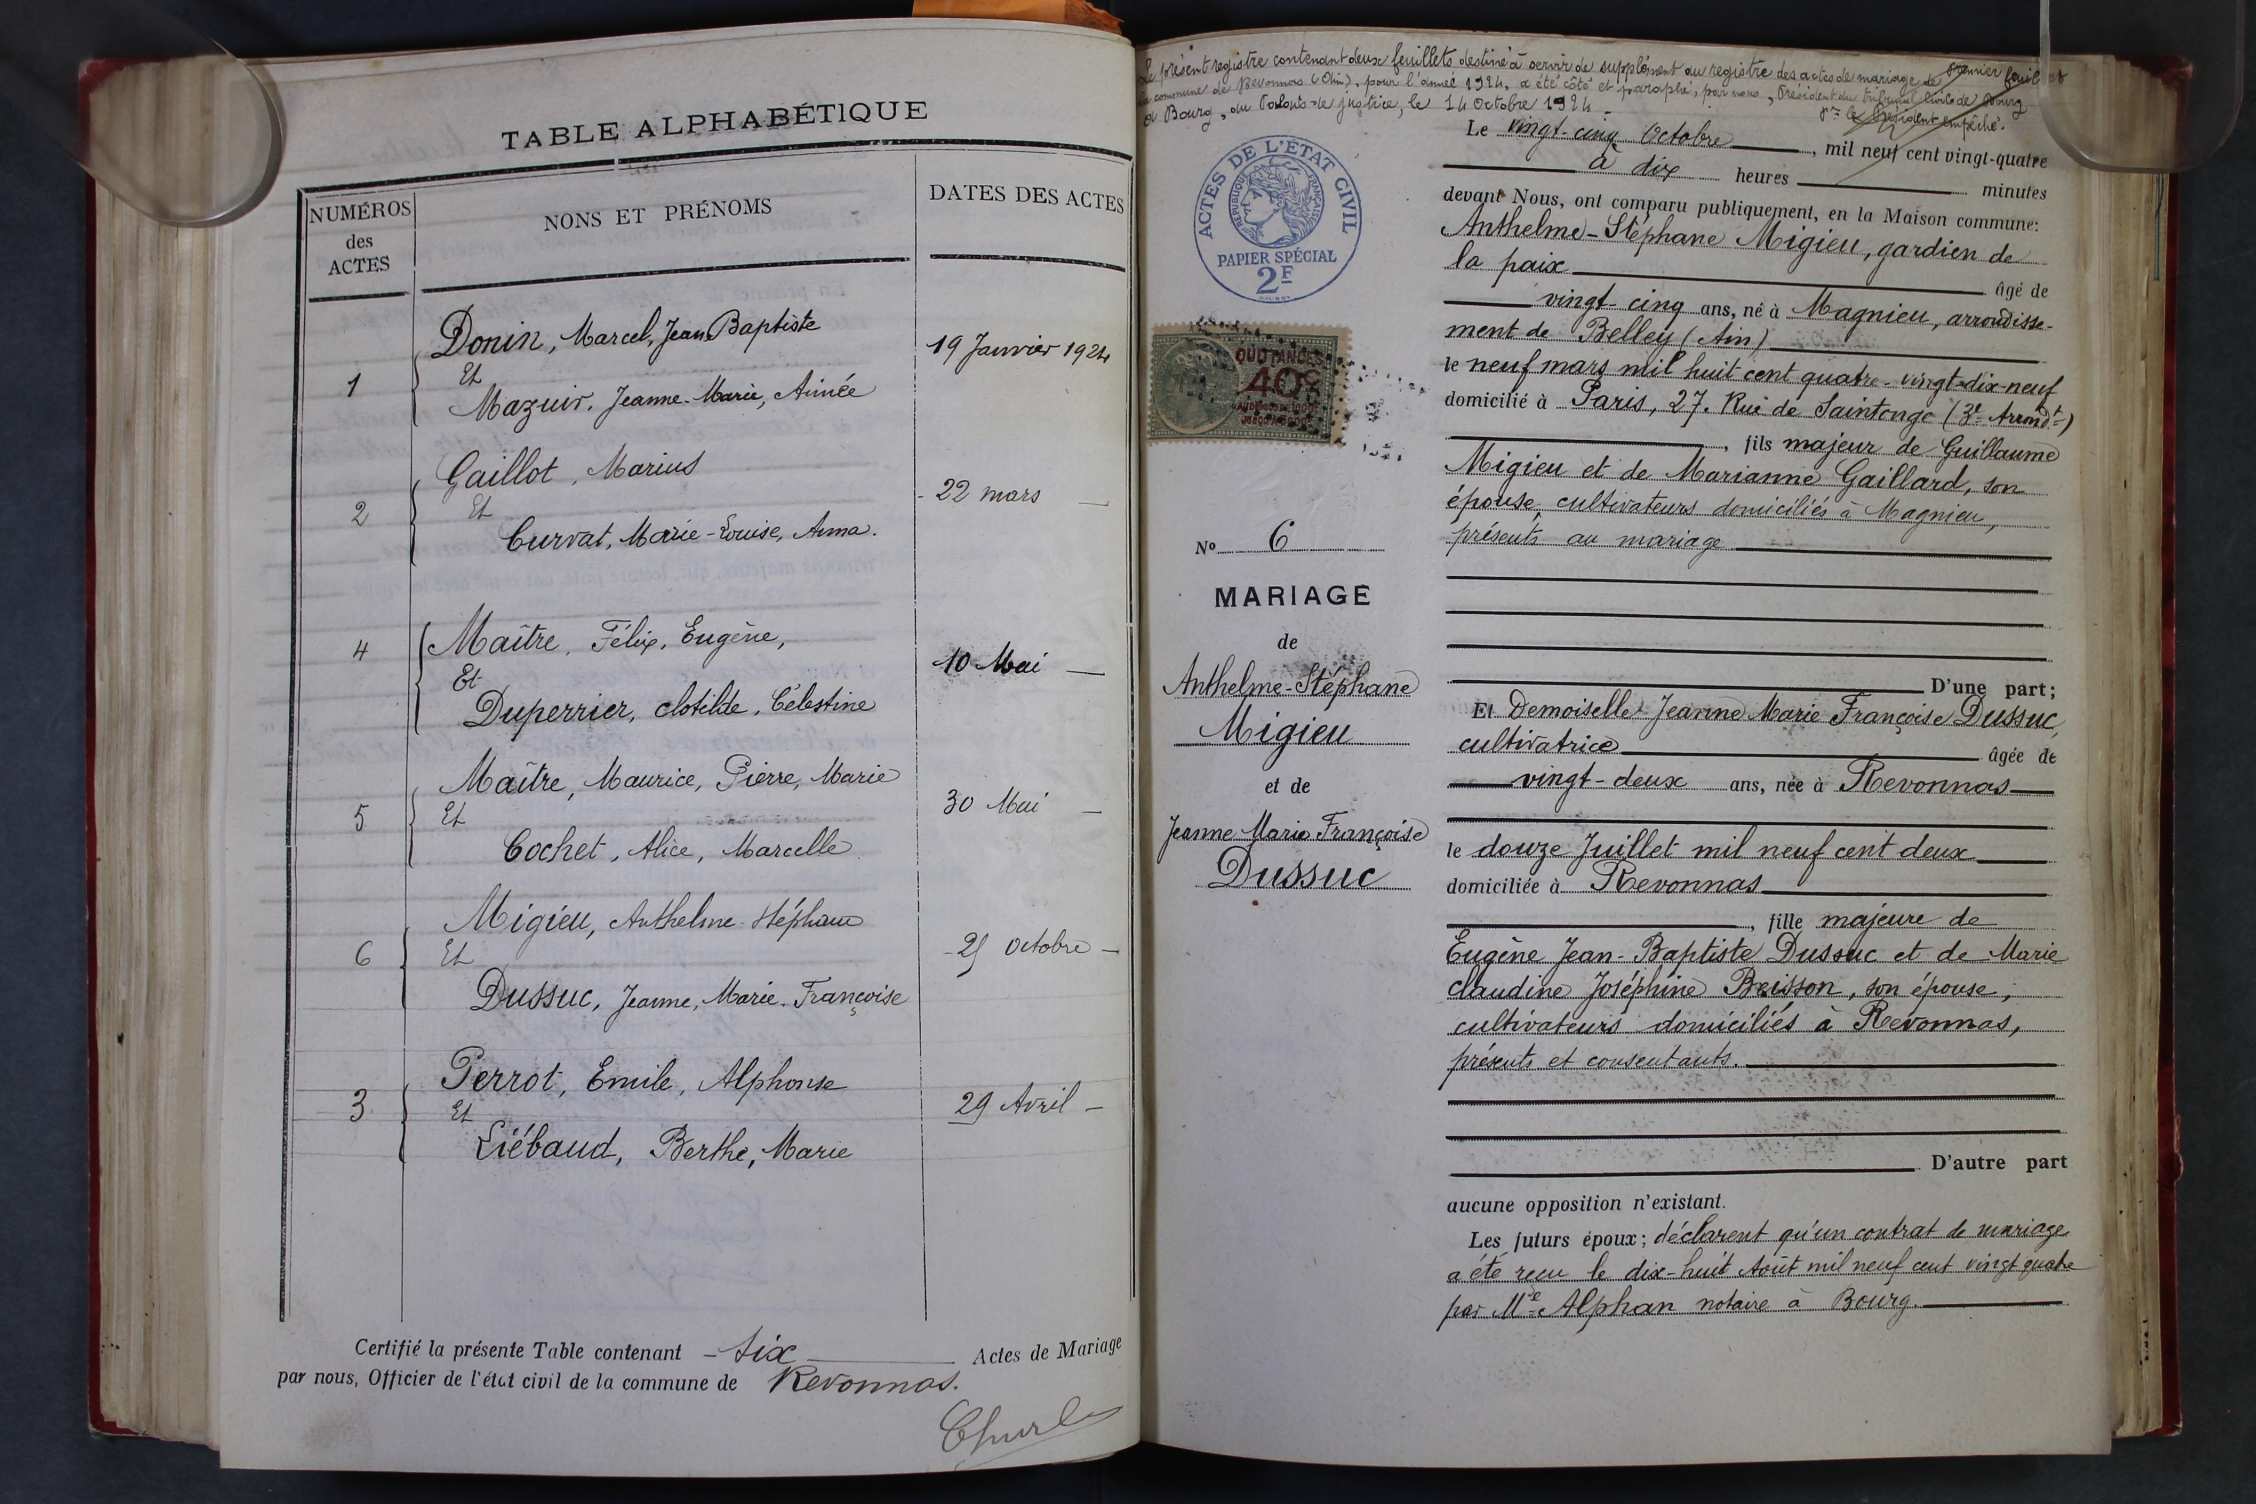 TABLE ALPHABÉTIQUE
NUMÉROS
des
ACTES
NONS ET PRÉNOMS
DATES DES ACTES
1
Donin, Marcel, Jean Baptiste
Et
Mazuir, Jeanne-Marie, Aimée
19 Janvier 1924
2
Gaillot, Marius
Et
Curvat, Marie-Louise, Anna.
22 mars
4
Maître, Félix, Eugène,
Et
Duperrier, clotilde, Célestine
10 Mai
5
Maître, Maurice, Pierre, Marie
Et
Cochet, Alice, Marcelle
30 Mai
6
Migieu, Anthelme-Stéphane
Et
Dussuc, Jeanne, Marie-Françoise
25 octobre
3
Perrot, Emile, Alphonse
Et
Liébaud, Berthe, Marie
29 Avril
Certifié la présente Table contenant six Actes de Mariage
par nous, Officier de l'état civil de la commune de Revonnas.
Le présent registre contenant deux feuillets destiné à servir de supplément au registre des actes de mariage de premier feuillet
la commune de Revonnas (Ain), pour l'année 1924, a été côté et paraphé, par nous, Président du tribunal civil de Bourg
à Bourg, au Palais de justice, le 14 Octobre 1924
Pr le Président empêché.
ACTES DE L'ÉTAT CIVIL
RÉPUBLIQUE FRANÇAISE
PAPIER SPÉCIAL
2F
QUITTANCES
40c
No 6
MARIAGE
de
Anthelme-Stéphane
Migieu
et de
Jeanne Marie Françoise
Dussuc
Le vingt-cinq Octobre, mil neuf cent vingt-quatre
à dix heures minutes
devant Nous, ont comparu publiquement, en la Maison commune:
Anthelme-Stéphane Migieu, gardien de
la paix âgé de
vingt-cinq ans, né à Magnieu, arrondisse-
ment de Belley (Ain)
le neuf mars mil huit cent quatre-vingt-dix-neuf
domicilié à Paris, 27. Rue de Saintonge (3e Arrondt)
, fils majeur de Guillaume
Migieu et de Marianne Gaillard, son
épouse, cultivateurs domiciliés à Magnieu,
présents au mariage
D'une part;
Et Demoiselle Jeanne Marie Françoise Dussuc,
cultivatrice âgée de
vingt-deux ans, née à Revonnas
le douze Juillet mil neuf cent deux
domiciliée à Revonnas
, fille majeure de
Eugène Jean-Baptiste Dussuc et de Marie
Claudine Joséphine Brisson, son épouse,
cultivateurs domiciliés à Revonnas,
présents et consentants.
D'autre part
aucune opposition n'existant.
Les futurs époux; déclarent qu'un contrat de mariage
a été reçu le dix-huit Août mil neuf cent vingt quatre
par Me Alphan notaire à Bourg.